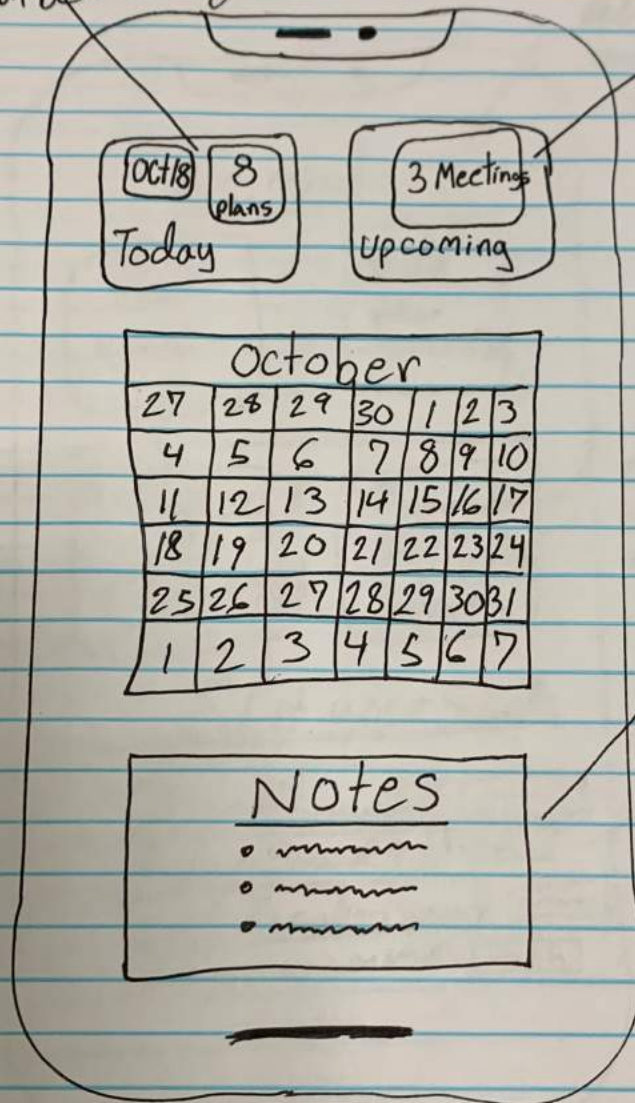 Oct 18
8
plans
Today
3 Meetings
Upcoming
October
27 28 29 30 1 2 3
4 5 6 7 8 9 10
11 12 13 14 15 16 17
18 19 20 21 22 23 24
25 26 27 28 29 30 31
1 2 3 4 5 6 7
Notes